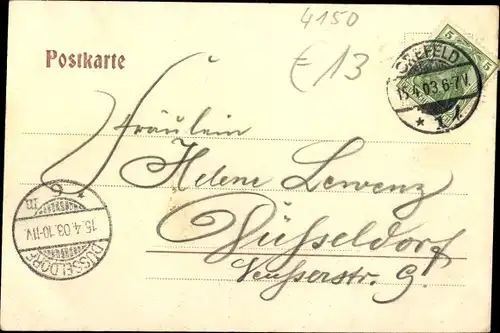 4150
€ 13
Postkarte
5 5
CREFELD
15.4.03.6-7V.
* 1 f.
Fräulein
Helene Lewenz
Düsseldorf
Neusserstr. 9.
DÜSSELDORF
15.4.03.10-11V.